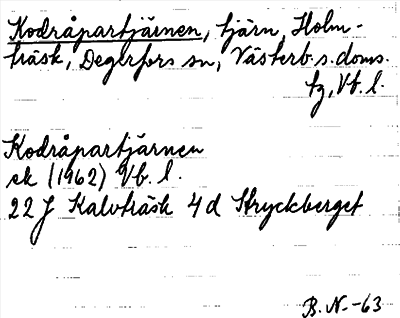 Kodråpartjärnen, tjärn, Holm-
träsk, Degerfors sn, Västerb. s. doms.
fg, Vb. l.
Kodråpartjärnen
ek (1962) Vb. l.
22 J Kalvträsk 4 d Stryckberget
B. N. -63